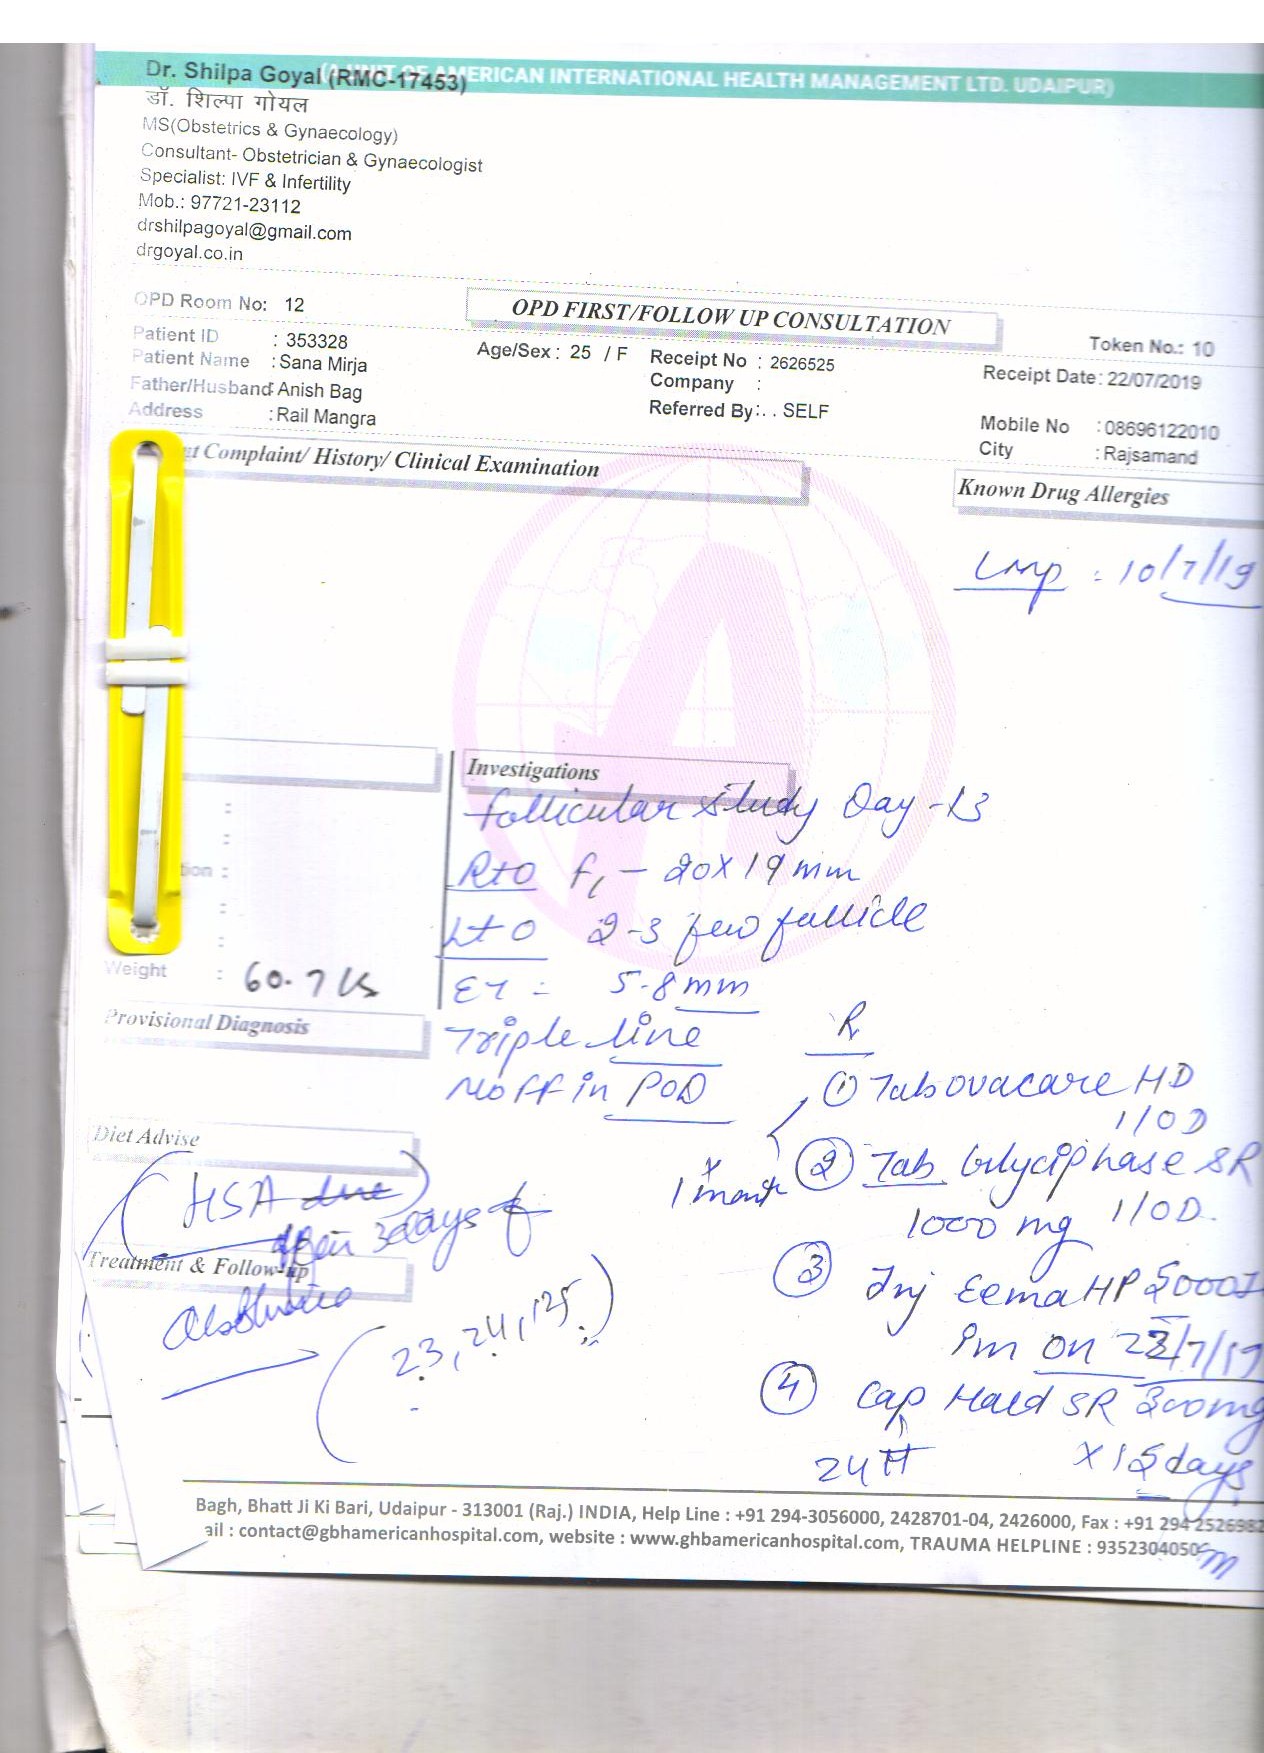 (A UNIT OF AMERICAN INTERNATIONAL HEALTH MANAGEMENT LTD. UDAIPUR)
Dr. Shilpa Goyal (RMC-17453)
डॉ. शिल्पा गोयल
MS(Obstetrics & Gynaecology)
Consultant- Obstetrician & Gynaecologist
Specialist: IVF & Infertility
Mob.: 97721-23112
drshilpagoyal@gmail.com
drgoyal.co.in
OPD Room No: 12
OPD FIRST/FOLLOW UP CONSULTATION
Token No.: 10
Patient ID : 353328
Patient Name : Sana Mirja
Father/Husband: Anish Bag
Address : Rail Mangra
Age/Sex : 25 / F
Receipt No : 2626525
Company :
Referred By: . . SELF
Receipt Date: 22/07/2019
Mobile No : 08696122010
City : Rajsamand
Complaint/ History/ Clinical Examination
Known Drug Allergies
LMP : 10/7/19
Investigations
Follicular study Day-13
RtO f1 - 20X19mm
Lt O 2-3 few follicle
ET = 5.8mm
Triple line
No ff in POD
Weight : 60.7 KG
Provisional Diagnosis
R
① Tab ovacare HD
1/OD
② Tab Glyciphase SR
1000 mg 1/OD.
x 1 month
③ Inj Eema HP 5000I
Im on /7/19
④ Cap Hald SR 300mg
X 15days
Diet Advise
HSA due
after 3days of
Abstinence
Treatment & Follow-up
(23, 24, 25.)
Bagh, Bhatt Ji Ki Bari, Udaipur - 313001 (Raj.) INDIA, Help Line : +91 294-3056000, 2428701-04, 2426000, Fax : +91 294 2526982
ail : contact@gbhamericanhospital.com, website : www.ghbamericanhospital.com, TRAUMA HELPLINE : 9352304050